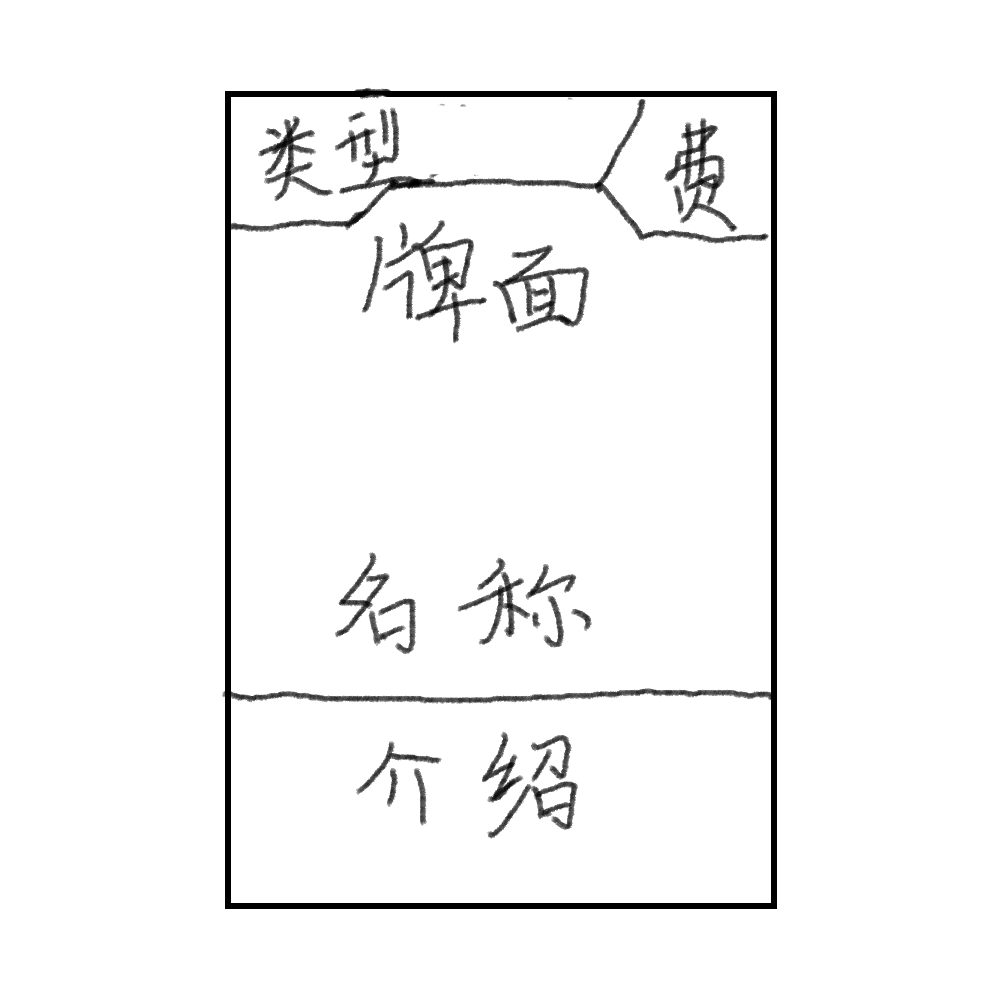 类型 费
牌面
名称
介绍